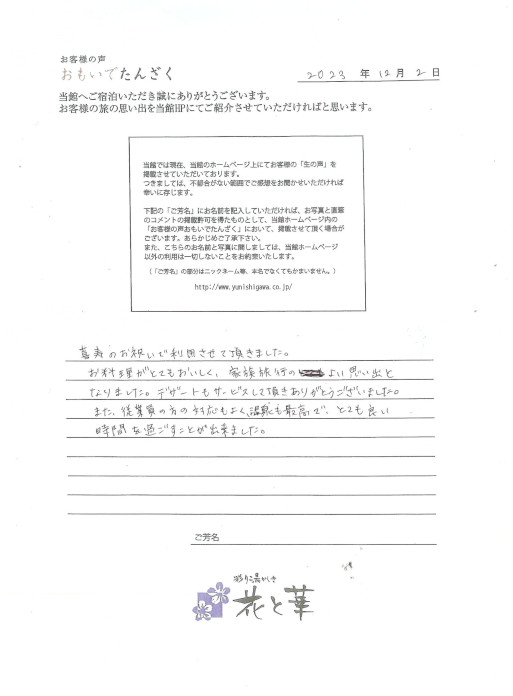 お客様の声
おもいでたんざく
2023 年 12 月 2 日
当館へご宿泊いただき誠にありがとうございます。
お客様の旅の思い出を当館HPにてご紹介させていただければと思います。
当館では現在、当館のホームページ上にてお客様の「生の声」を
掲載させていただいております。
つきましては、不都合がない範囲でご感想をお聞かせいただければ
幸いに存じます。
下記の「ご芳名」にお名前を記入していただければ、お写真と直筆
のコメントの掲載許可を得たものとして、当館ホームページ内の
「お客様の声おもいでたんざく」において、掲載させて頂く場合が
ございます。あらかじめご了承下さい。
また、こちらのお名前と写真に関しましては、当館ホームページ
以外の利用は一切しないことをお約束いたします。
(「ご芳名」の部分はニックネーム等、本名でなくてもかまいません。)
http://www.yunishigawa.co.jp/
喜寿のお祝いで利用させて頂きました。
お料理がとてもおいしく、家族旅行の よい思い出と
なりました。デザートもサービスして頂きありがとうございました。
また、従業員の方の対応もよく、温泉も最高で、とても良い
時間を過ごすことが出来ました。
ご芳名
彩り湯かしき
花と華